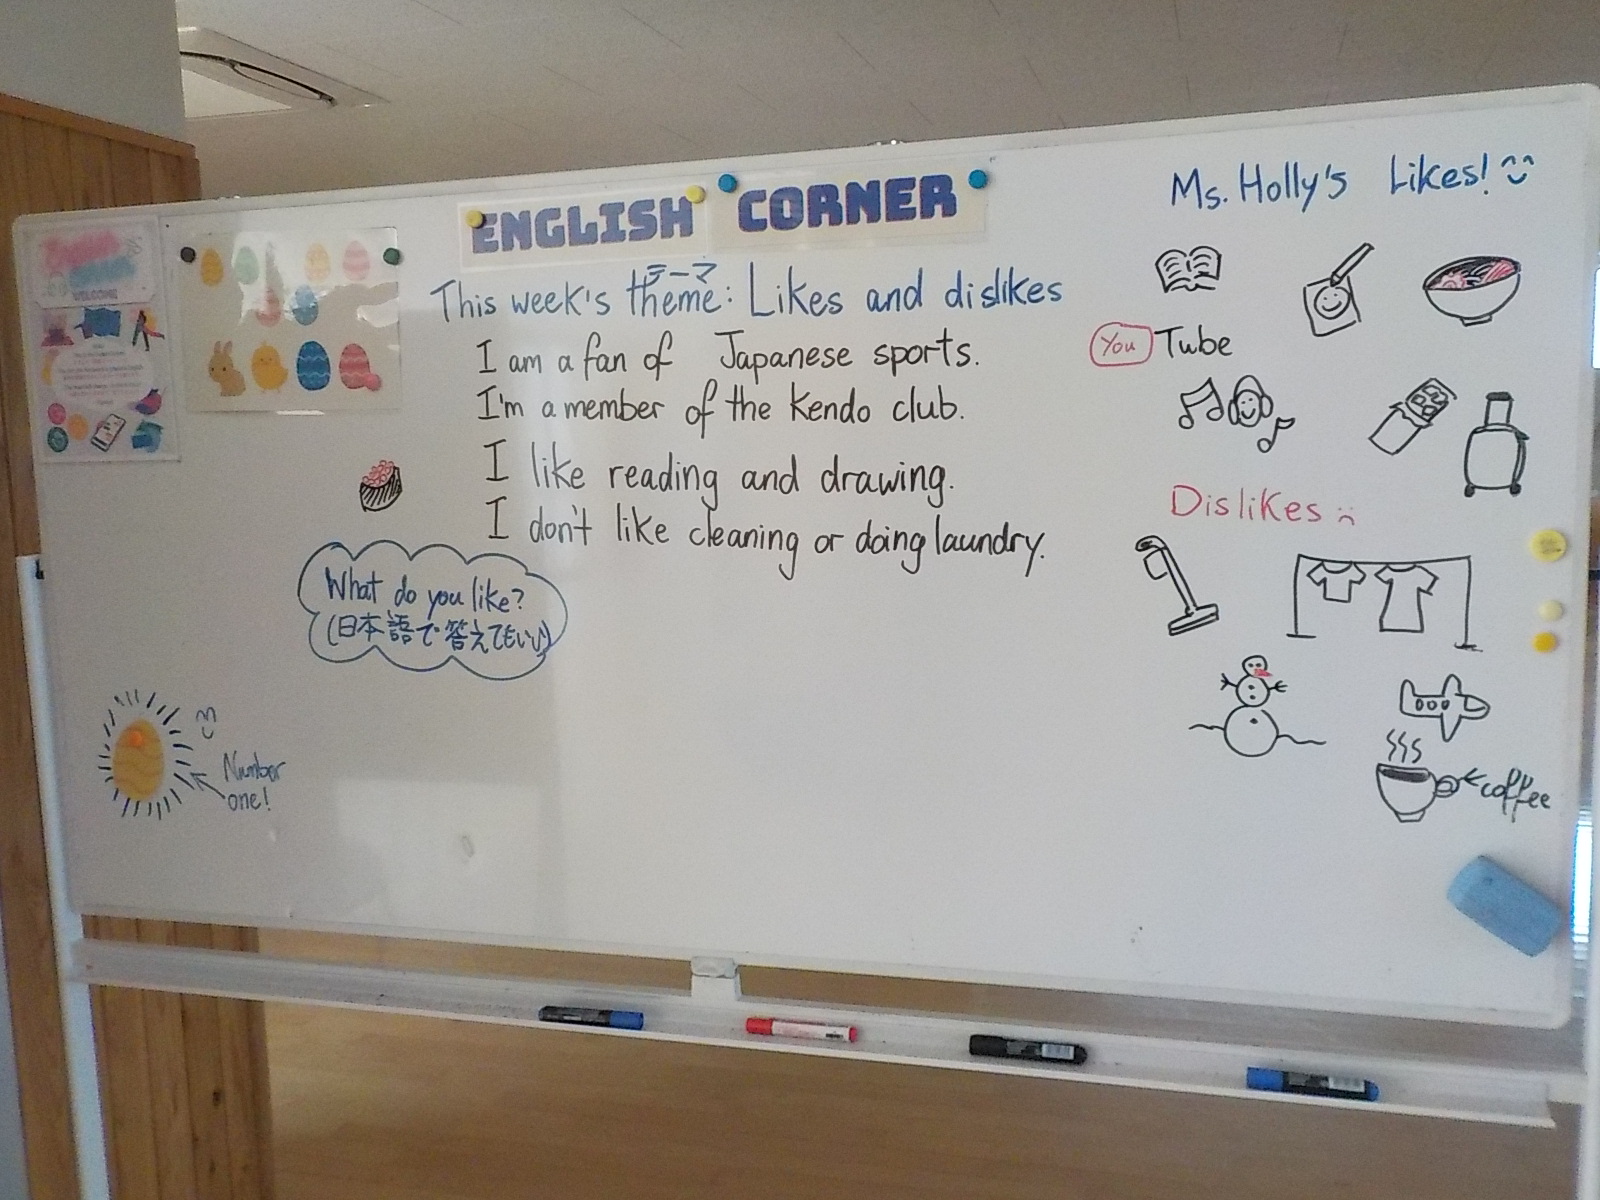 ENGLISH CORNER
テーマ
This week's theme: Likes and dislikes
I am a fan of Japanese sports.
I'm a member of the Kendo club.
I like reading and drawing.
I don't like cleaning or doing laundry.
What do you like?
(日本語で答えてもいい)
Number
one!
Ms. Holly's Likes!
You Tube
Dislikes
coffee
WELCOME